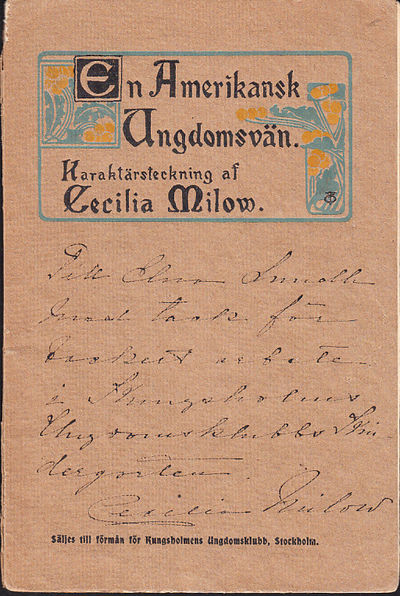 En Amerikansk
Ungdomsvän.
Karaktärsteckning af
Cecilia Milow.
Till Elna
med tack för
arbete
i Kungsholms
Ungdomsklubbs Kin-
dergarten.
Cecilia Milow
Säljes till förmån för Kungsholmens Ungdomsklubb, Stockholm.